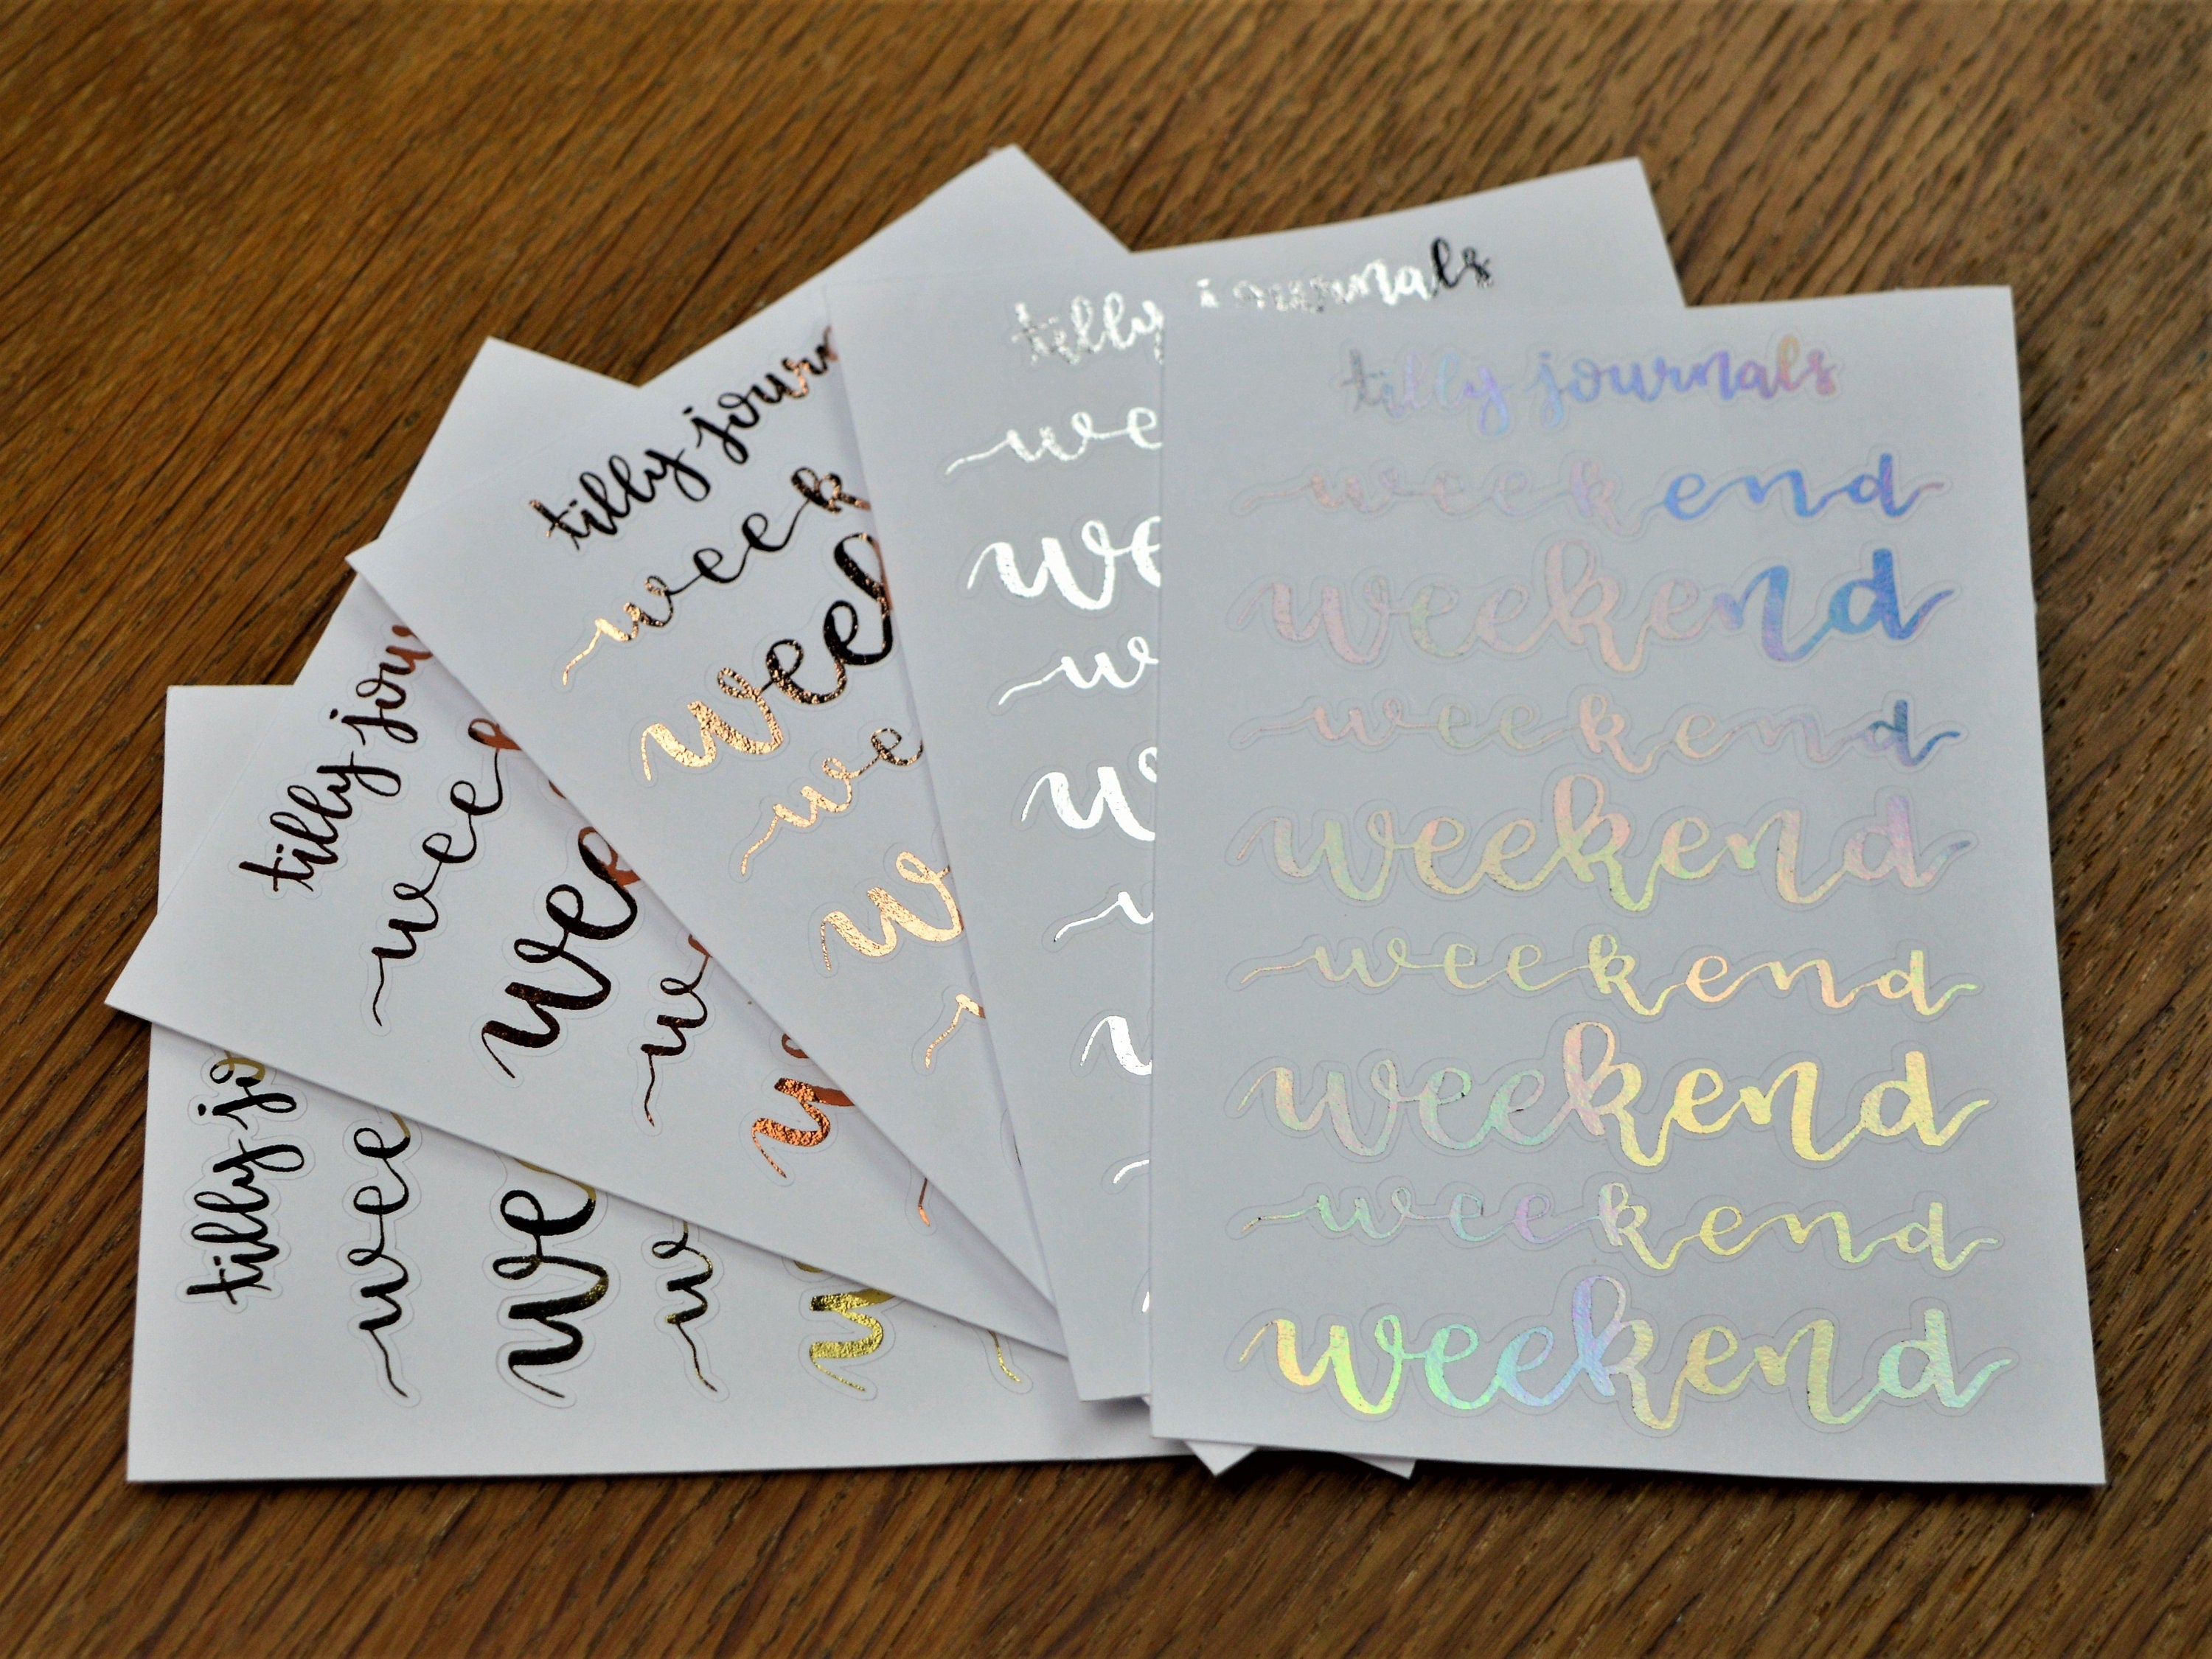 tilly jo
wee
we
w
w
tilly jou
wee
we
w
w
tilly journ
week
wee
we
w
tilly journals
we
we
w
w
w
tilly journals
weekend
weekend
weekend
weekend
weekend
weekend
weekend
weekend